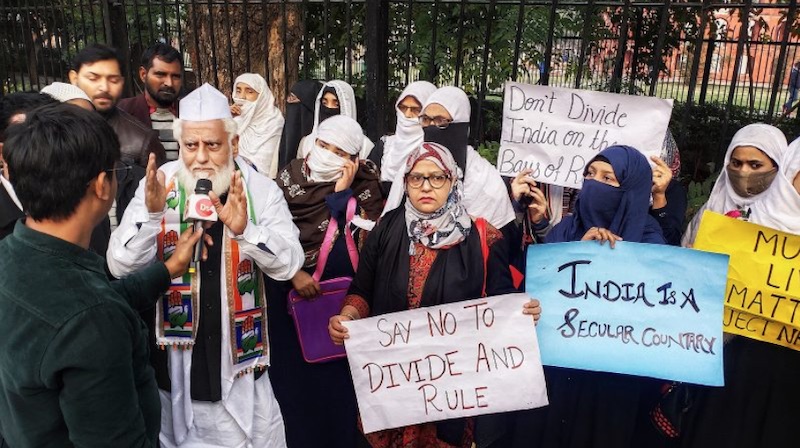 Don't Divide
India on the
Basis of
SAY NO TO
DIVIDE AND
RULE
INDIA IS A
SECULAR COUNTARY
MU
LI
MATT
JECT NA